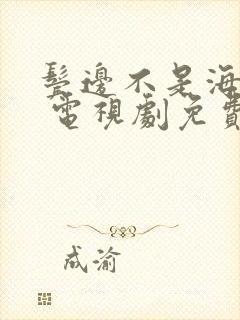 鬓邊不是海
電視劇免費
成渝